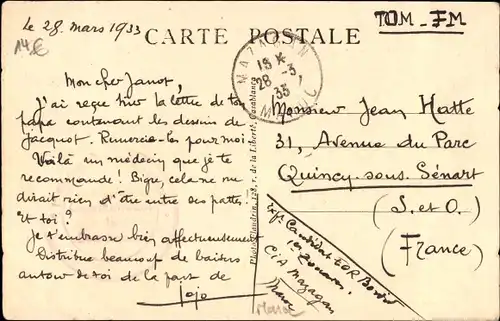 le 28. mars 1933
14.€
CARTE POSTALE
TOM-FM
MAZAGAN
18 *
28 -3
33
MAROC
Mon cher Janot,
J'ai reçu hier la lettre de ton
papa contenant les dessins de
Jacquot. Remercie-les pour moi
Voilà un médecin que je te
recommande! Bigre, cela ne me
dirait rien d'être entre ses pattes.
Et toi?
Je t'embrasse bien affectueusement
Distribue beaucoup de baisers
autour de toi de la part de
Jojo
Photo Flandrin, 128, r. de la Liberté, Casablanca
Monsieur Jean Hatte
31, Avenue du Parc
Quincy-sous-Sénart
(S. et O.)
(France)
Exp. Candidat EOR
1er Zouaves,
Cie Mazagan
Maroc
Maroc